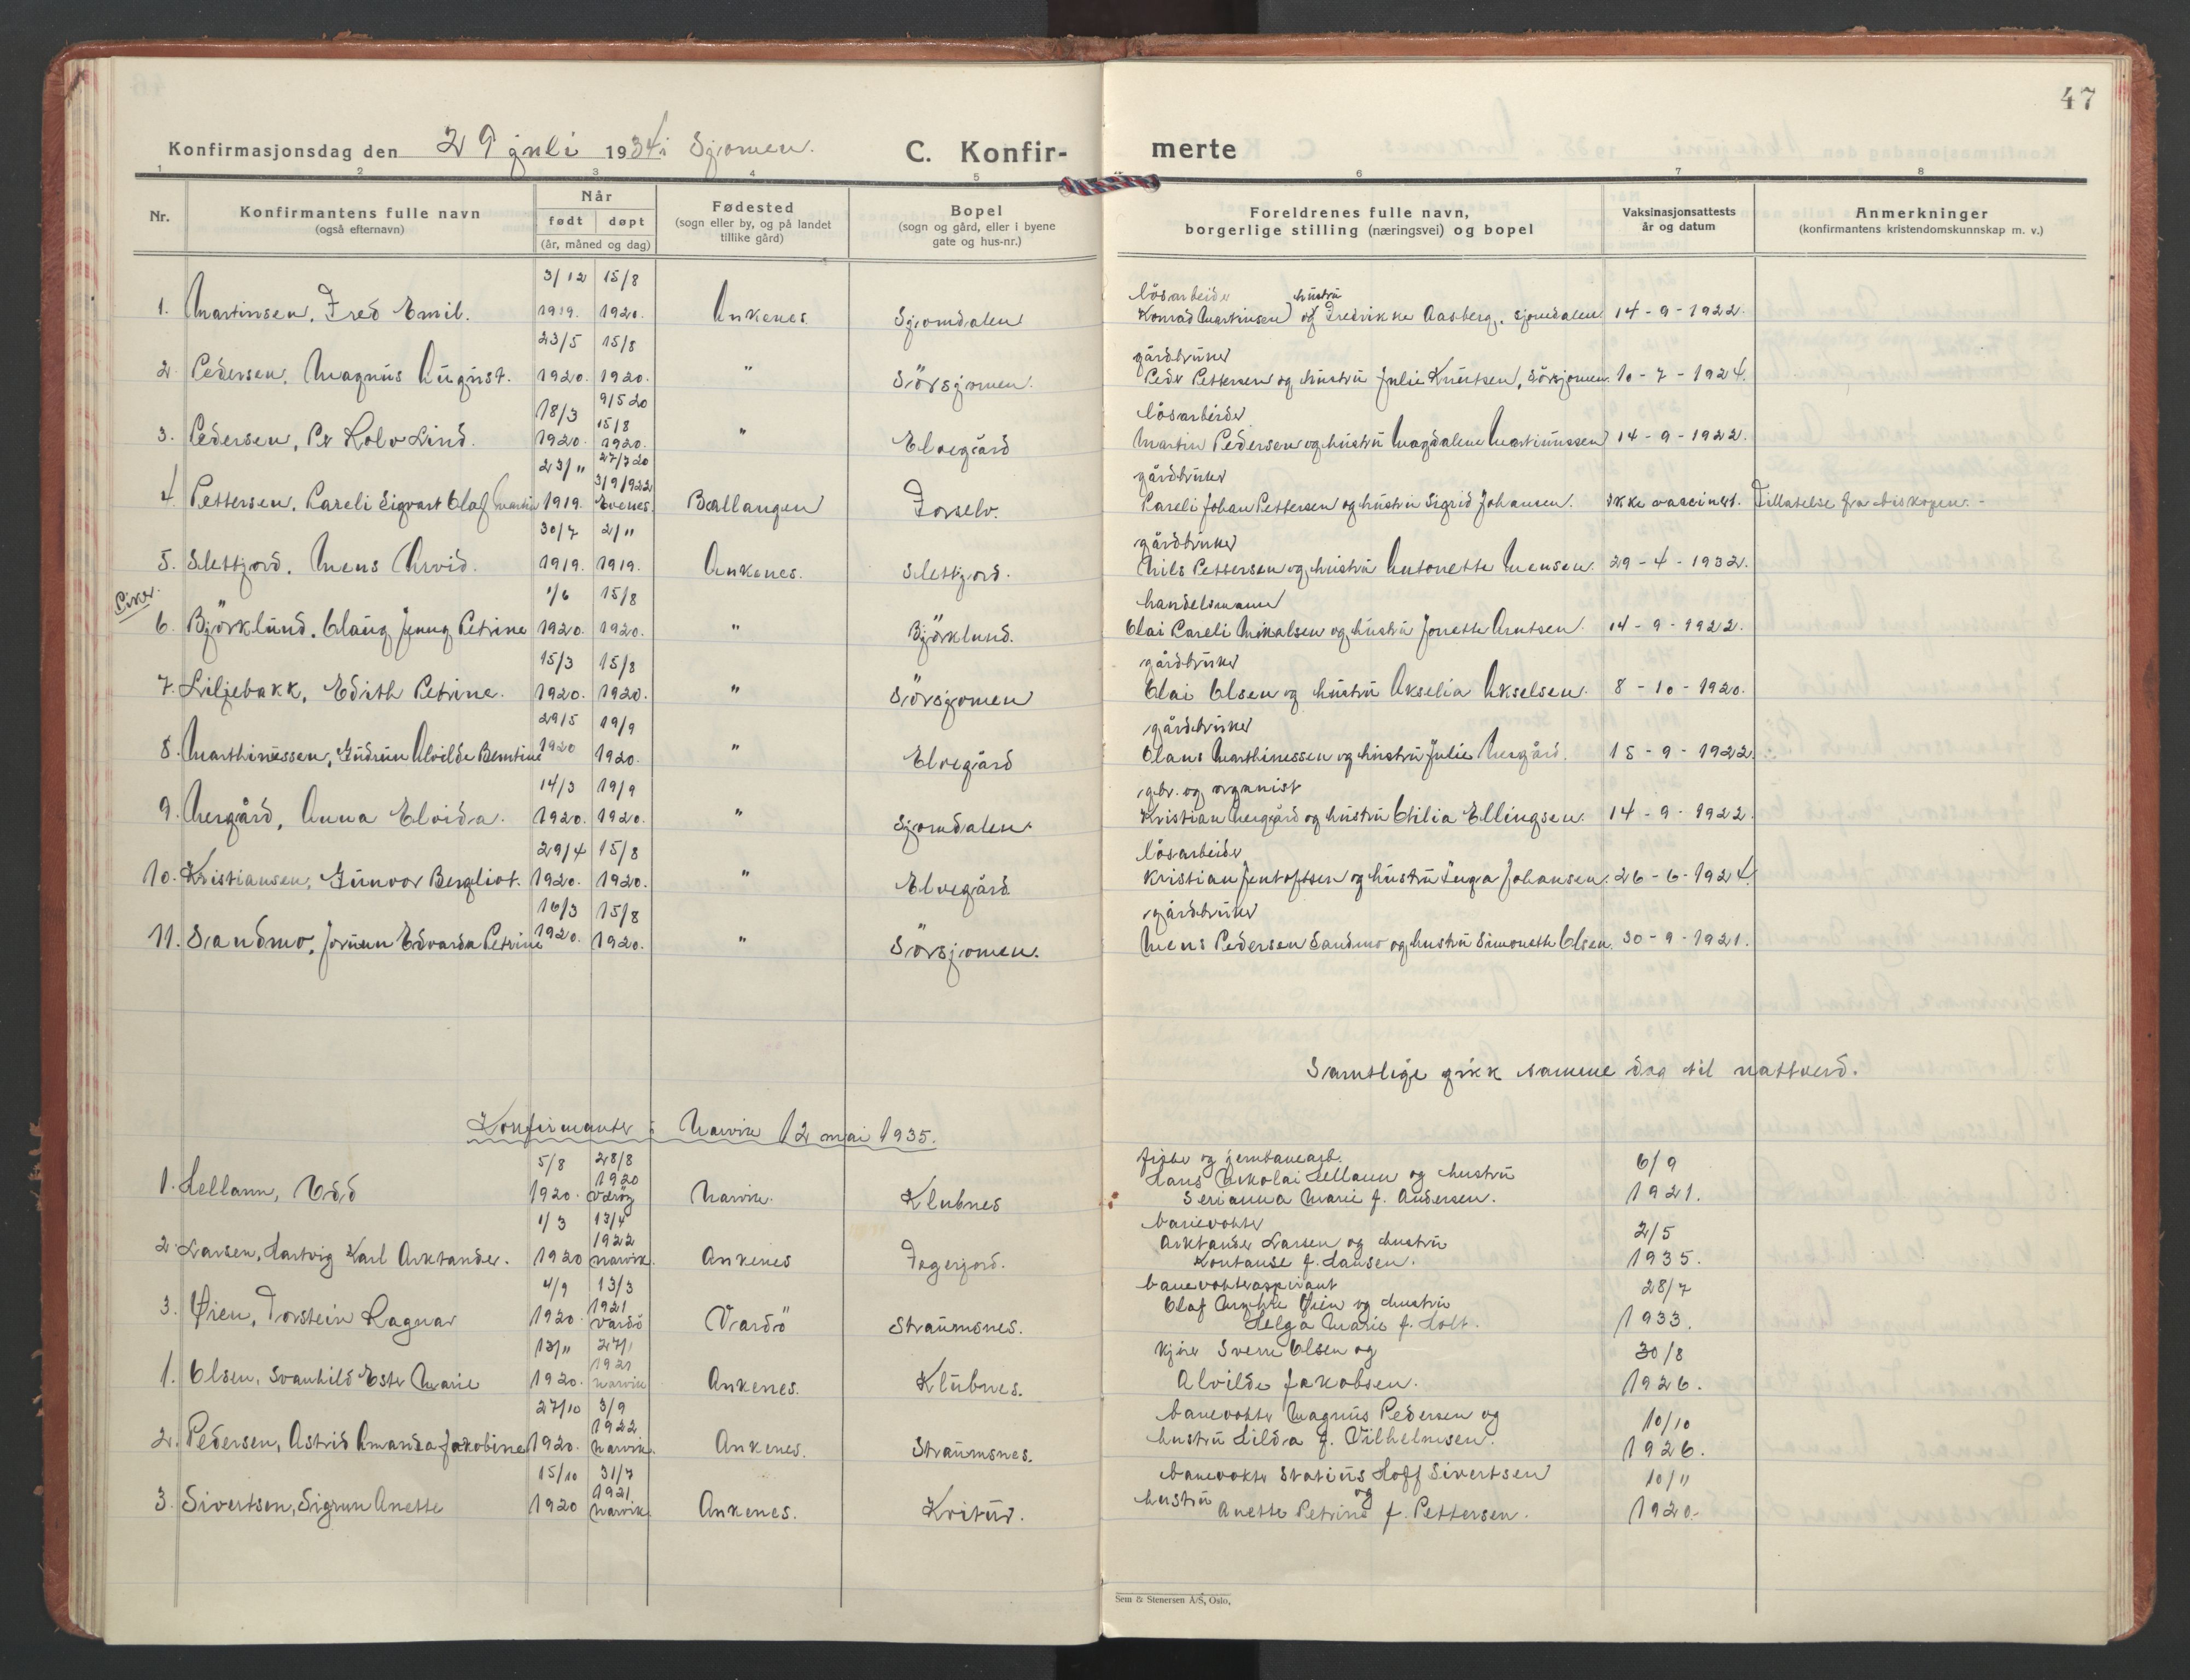 47
Konfirmasjonsdag den 29 juli 1934 i Sjomen. C. Konfir- merte
1 2 3 4 5 6 7 8
Nr.
Konfirmantens fulle navn
(også efternavn)
Når
født døpt
(år, måned og dag)
Fødested
(sogn eller by, og på landet
tillike gård)
Bopel
(sogn og gård, eller i byene
gate og hus-nr.)
Foreldrenes fulle navn,
borgerlige stilling (næringsvei) og bopel
Vaksinasjonsattests
år og datum
Anmerkninger
(konfirmantens kristendomskunnskap m. v.)
3/12 15/8 lösarbeider hustru
1. Martinsen, Fred Emil. 1919. 1920. Ankenes Sjomdalen Konrad Martinsen og Fredrikke Aasberg, Sjomdalen 14-9-1922.
23/5 15/8 gårdbruker
2 Pedersen, Magnus August. 1920. 1920. " Sörsjomen. Peder Pettersen og hustru Julie Knutsen, Sörsjomen. 10-7-1924.
18/3 9/5 20 15/8 lösarbeider
3. Pedersen, Per Rolv Lind. 1920. 1920. " Elvegård Martin Pedersen og hustru Magdalene Martinussen 14-9-1922.
23/11 27/7 20 3/9 1922 gårdbruker
4 Pettersen, Pareli Sigvart Olaf Martin 1919. Evenes. Ballangen Forselv. Pareli Johan Pettersen og hustru Sigrid Johansen. ikke vaccinert. Tillatelse fra biskopen.-
30/7 2/11 gårdbruker
5. Slettjord, Mens Arvid. 1919. 1919. Ankenes. Slettjord. Nils Pettersen og hustru Antonette Mensen. 29-4-1932.
Piker.
1/6 15/8 handelsmann
6. Björklund, Olaug Jenny Petrine 1920. 1920. " Björklund. Olai Pareli Mikalsen og hustru Jonette Arntsen. 14-9-1922.
15/3 15/8 gårdbruker
7. Liljebakk, Edith Petrine. 1920. 1920. " Sörsjomen Olai Olsen og hustru Akselia Akselsen. 8-10-1920.
29/5 19/9 gårdbruker
8. Marthinussen, Gudrun Alvilde Berntine 1920 1920. " Elvegård Olaus Marthinussen og hustru Julie Nergård. 15-9-1922.
14/3 19/9 gbr. og organist
9. Nergård, Anna Elvida. 1920. 1920. " Sjomdalen. Kristian Nergård og hustru Otilia Ellingsen. 14-9-1922.
29/4 15/8 lösarbeider
10. Kristiansen, Gunvor Bergliot. 1920. 1920. " Elvegård Kristian Jentoftsen og hustru Inga Johansen. 26-6-1924.
16/3 15/8 gårdbruker
11. Sandmo, Jorunn Edvarda Petrine 1920. 1920. " Sörsjomen. Mens Pedersen Sandmo og hustru Simonette Olsen. 30-9-1921.
Samtlige gikk samme dag til nattverd.
Konfirmanter i Narvik 12 mai 1935.
5/8 28/8 fisker og jernbanearb. 6/9
1. Hellann, Odd 1920. 1920 Værøy Narvik. Klubnes Hans Nikolai Hellann og hustru
Serianna Marie f. Andersen. 1921.
1/3 13/4 banevokter 2/5
2. Larsen, Hartvig Karl Arktander. 1920 1922 Narvik. Ankenes Fagerjord. Arktander Larsen og hustru
Konstanse f. Hansen. 1935.
4/9 13/3 banevokteraspirant 28/7
3. Øien, Torstein Ragnar 1920. 1921 Vardö Vardö Straumsnes. Olaf Øien og hustru
Helga Marie f. Holt. 1933.
13/11 27/1 kjører Sverre Olsen og 30/8
1. Olsen, Svanhild Ester Marie 1920. 1921 Narvik Ankenes. Klubnes. Alvilde Jakobsen. 1926.
27/10 3/9 banevokter Magnus Pedersen og 10/10
2. Pedersen, Astrid Amanda Jakobine 1920. 1922 Narvik. Ankenes. Straumsnes. hustru Hilda f. Vilhelmsen. 1926.
15/10 31/7 banevokter Statius Hoff Sivertsen 10/11
3. Sivertsen, Sigrun Anette 1920 1921 Narvik. Ankenes. hustru og
Anette Petrine f. Pettersen. 1920.
Sem & Stenersen A/S, Oslo.